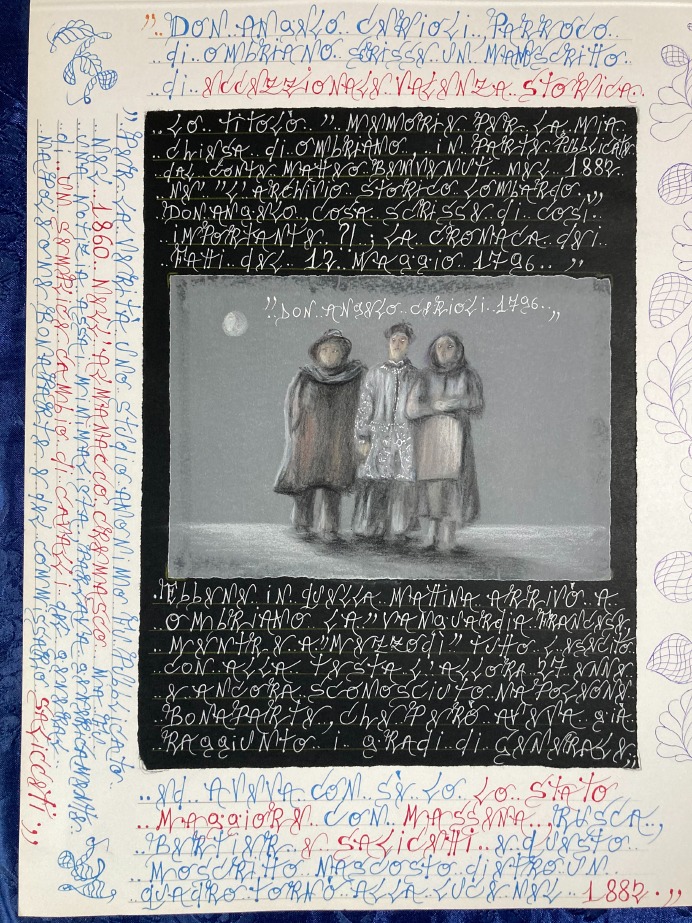 ,, DON ANGELO CERIOLI, PARROCO
di OMBRIANO SCRISSE UN MANOSCRITTO
di ECCEZZIONALE VALENZA STORICA.
LO TITOLÒ ,, MEMORIE PER LA MIA
CHIESA di OMBRIANO.. in PARTE PUBBLICATE
DAL CONTE MATTEO BENVENUTI NEL 1882
NE' "L'ARCHIVIO STORICO LOMBARDO,,
DON ANGELO COSA SCRISSE di COSÌ
IMPORTANTE ?! ; LA CRONACA dEi
FATTI dEL 12 MAGGIO 1796.. ,,
,,DON ANGELO CERIOLI 1796..,,
EbbENE iN quELLA MATTINA ARRIVÒ A
OMBRIANO LA "VANGUARDIA FRANCESE,
MENTRE A "MEZZODÌ" TUTTO L'ESERCITO
CON ALLA TESTA L'ALLORA 27 ENNE
E ANCORA SCONOSCIUTO NAPOLEONE
BONAPARTE, ChE PERÒ AVEVA già
RAggiUNTO i gRADi di GENERALE,,
..ED AVEVA CON SE LO STATO
MAggiORE CON MASSENA, RUSCA,
BERTIER E SALICETTI E quESTO
MOSCRITTO NASCOSTO diETRO UN
quADRO TORNÒ ALLA LUCE NEL 1882.,,
,, PER LA VERITÀ UNO STUDIO ANONIMO FU PUBBLICATO
NEL 1860 NELL'ALMANACCO CREMASCO MA
UNA NOTIZIA ASSAI MINIMALISTA PARLAVA
di UN SEMPLICE CAMBIO di CAVALLI dEL GENERAL
NAPOLEONE BONAPARTE E dEL COMMISSARIO SALICETTI,,